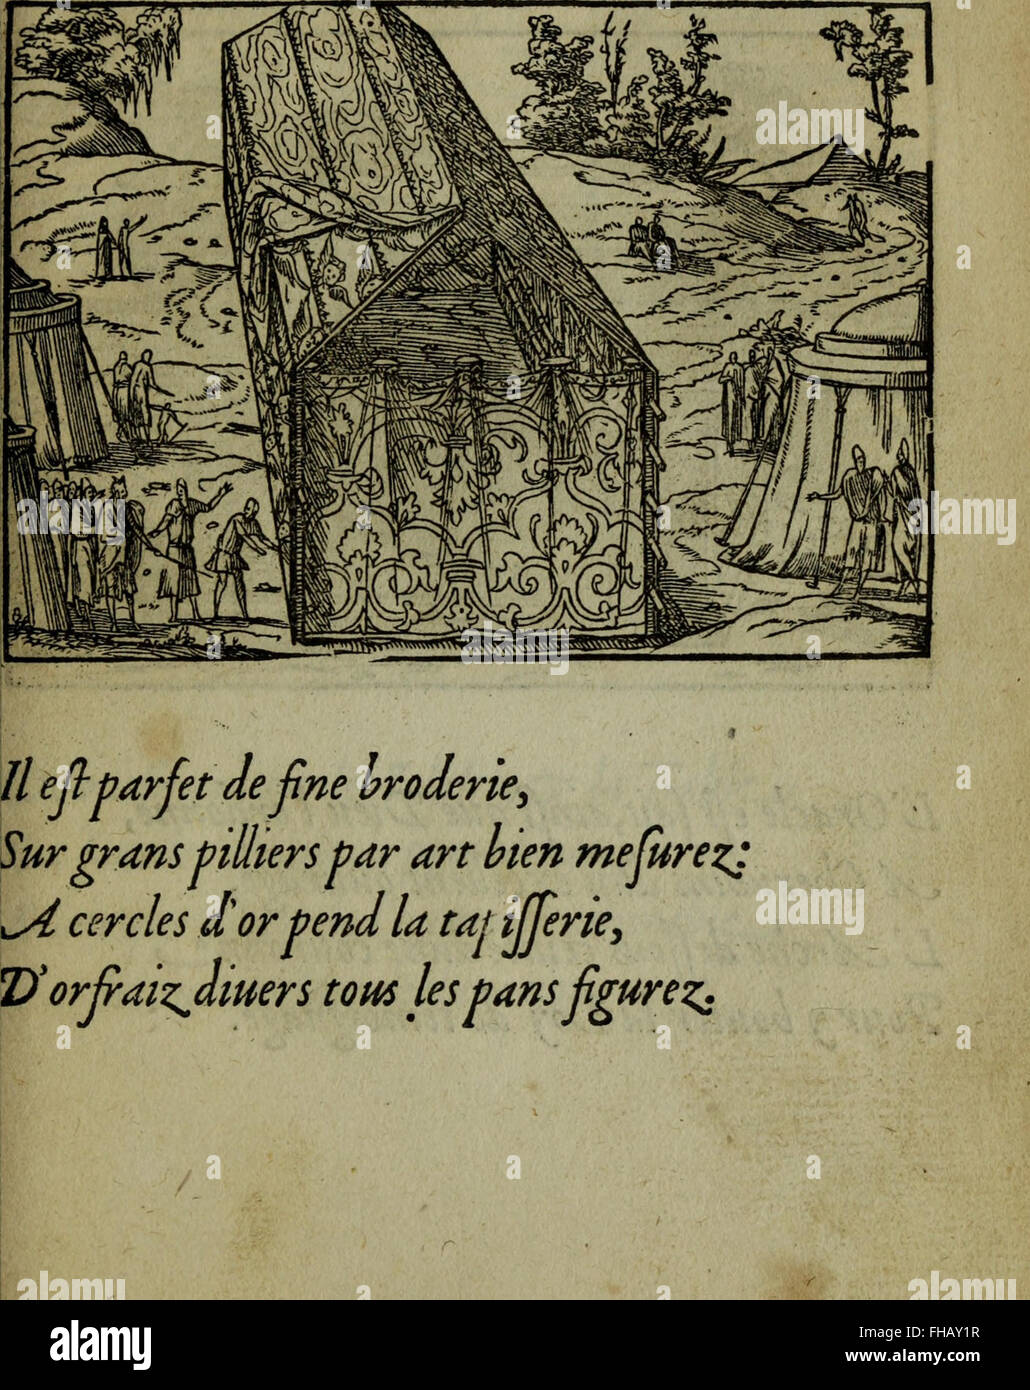 Il eſt parfet de fine broderie,
Sur grans pilliers par art bien meſurez:
A cercles d'or pend la tapiſſerie,
D'orfraiz diuers tous les pans figurez.
alamy
alamy
alamy
alamy
Image ID: FHAY1R
www.alamy.com